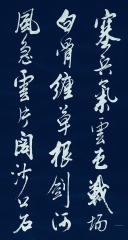 塞兵氣雲屯戰場
白骨纏草根劍河
風急雪片闊沙口石